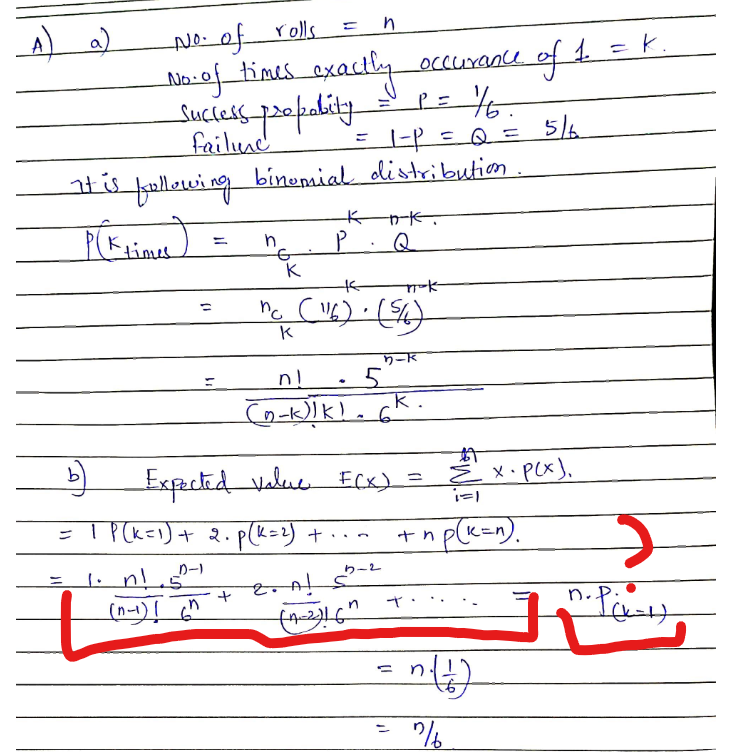 A) a) No. of rolls = n
No. of times exactly occurance of 1 = K.
Success propability = P = 1/6.
failure = 1-P = Q = 5/6
It is following binomial distribution.
P(K times) = n_C_K . P^K . Q^(n-K).
= n_C_K (1/6)^K . (5/6)^(n-K)
= n! . 5^(n-K) / (n-K)! K! . 6^K.
b) Expected value E(X) = Σ_(i=1)^n x . p(x).
= 1 P(K=1) + 2 . p(K=2) + .... + n p(K=n).
= 1 . n! . 5^(n-1) / (n-1)! 6^n + 2 . n! 5^(n-2) / (n-2)! 6^n + ...... = n . p . (K=1)
= n . (1/6)
= n/6